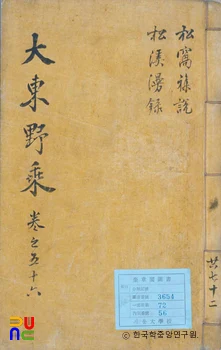 松窩雜說
松溪漫録
大東野乘 卷之五十六
共七十二
3654
72
56
ⓒ 한국학중앙연구원